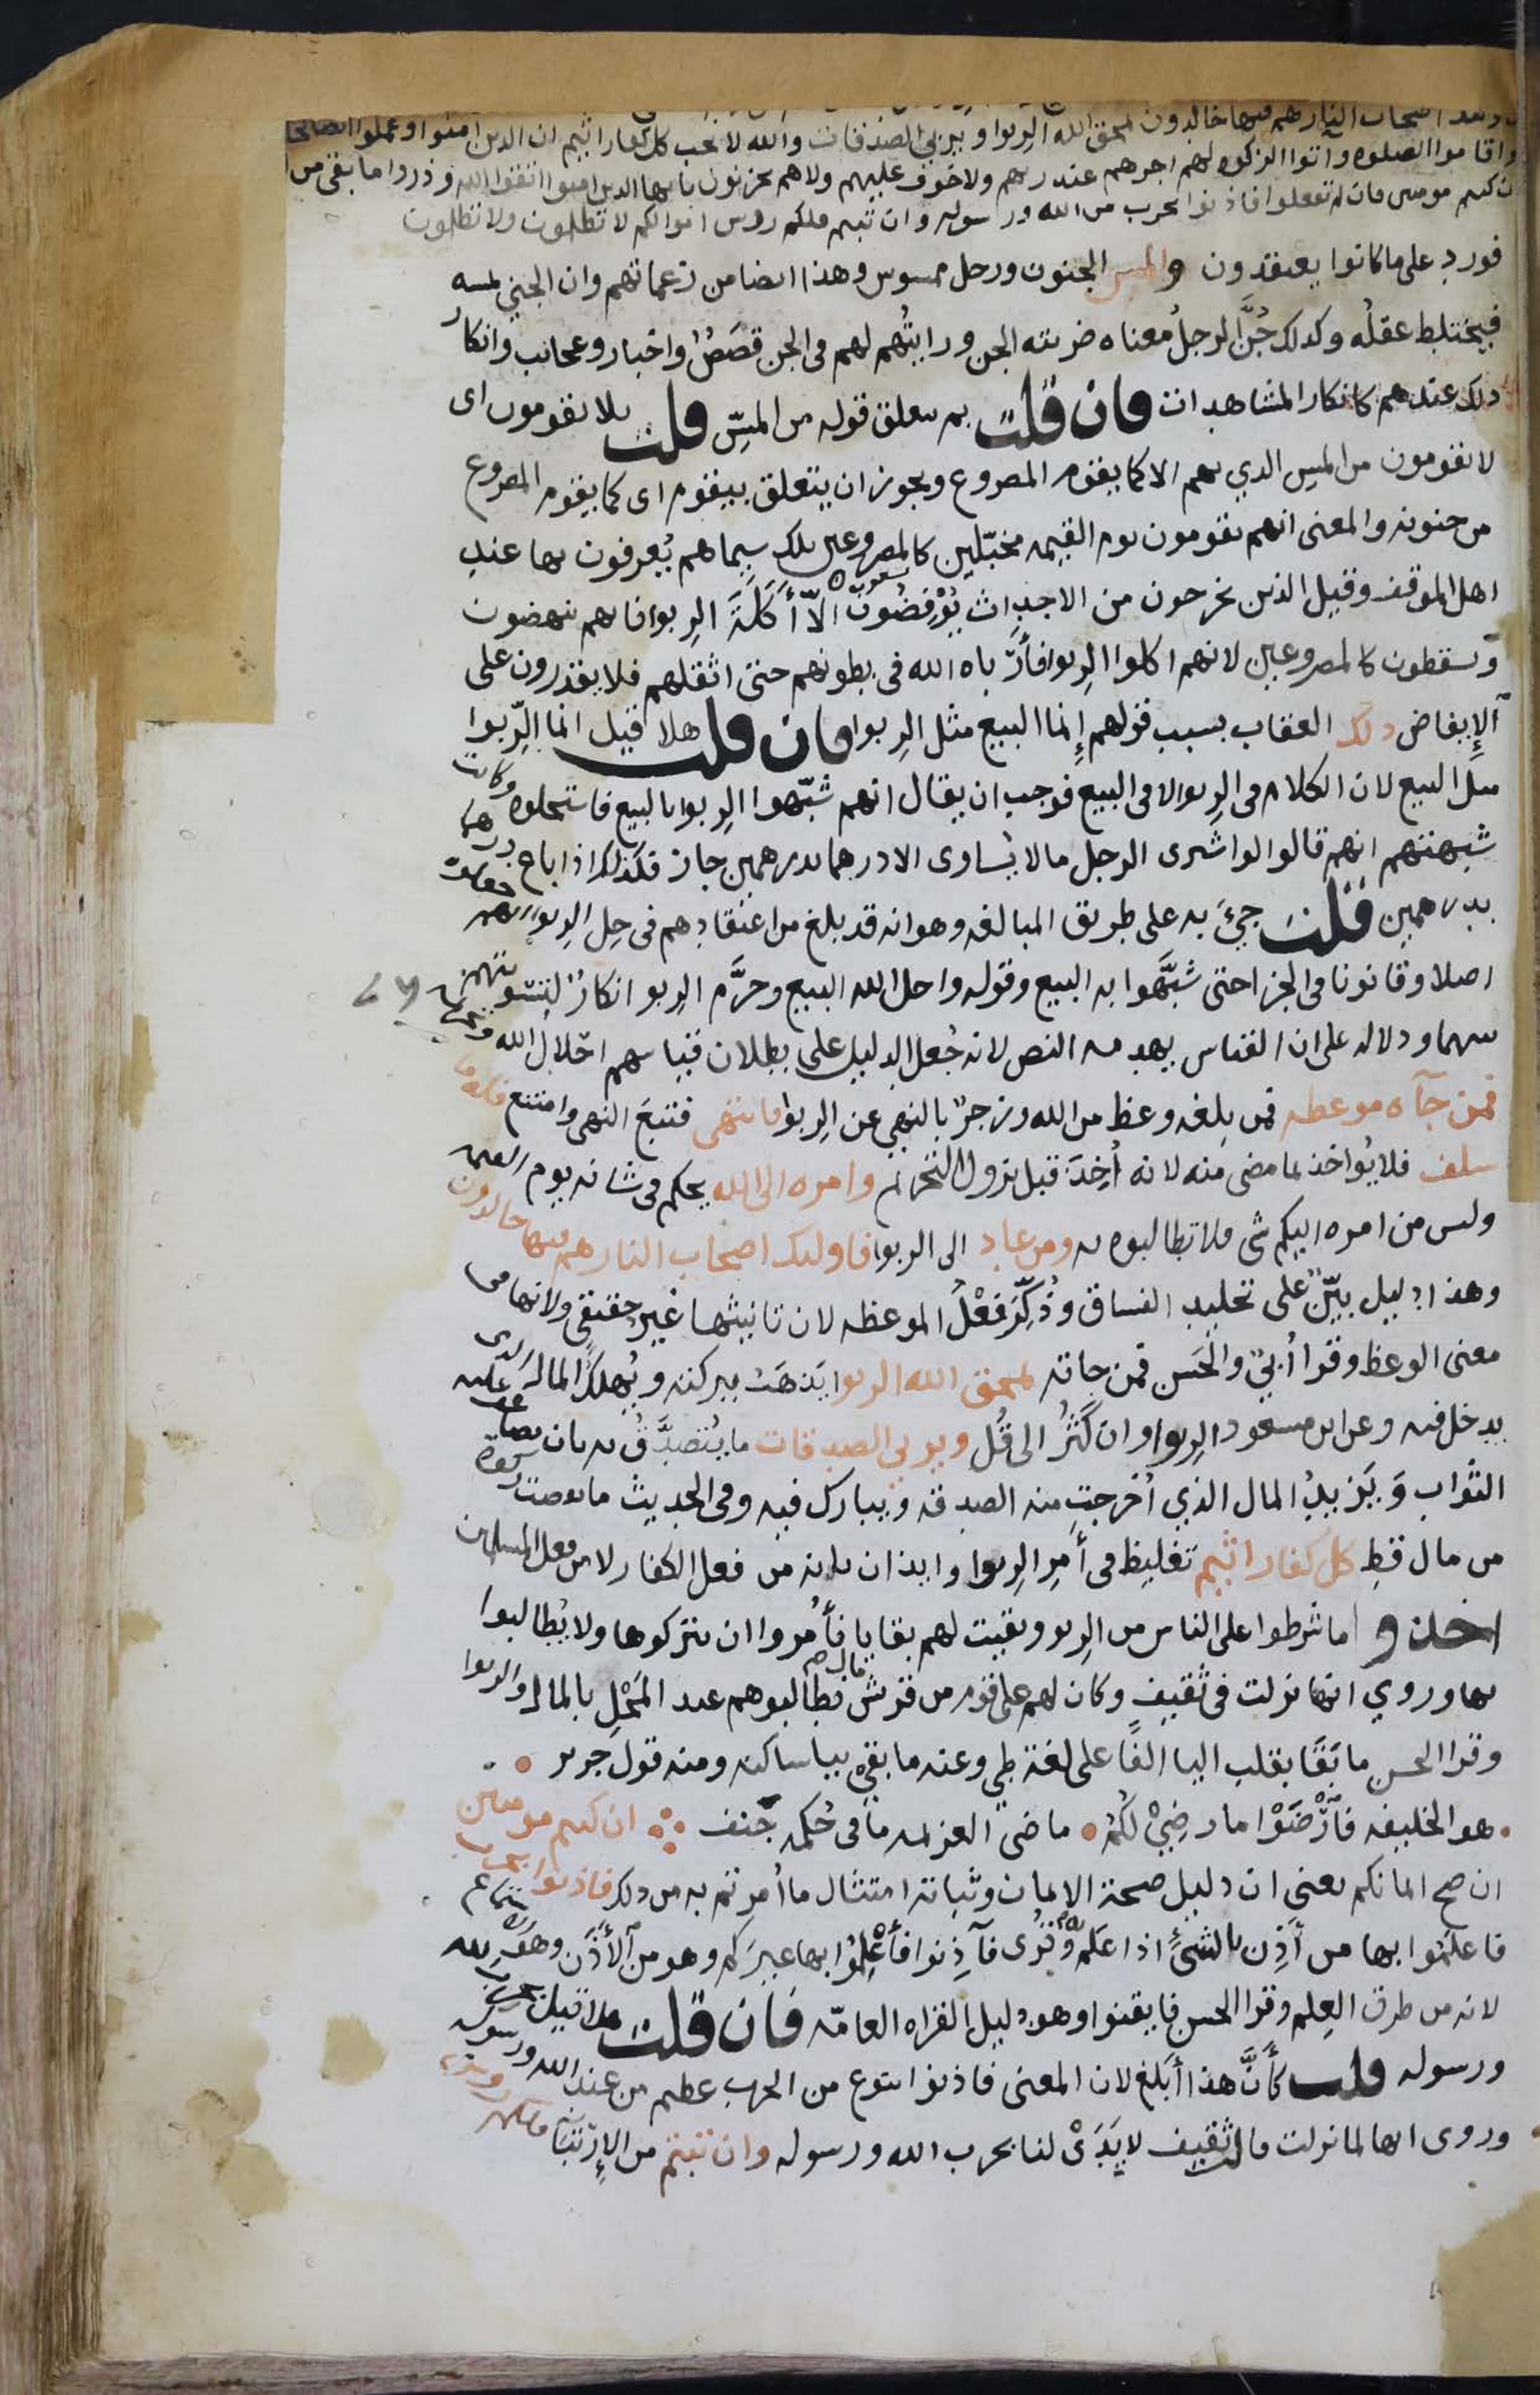 اصحاب النار هم فيها خالدون يمحق الله الربوا ويربي الصدقات والله لا يحب كل كفار اثيم ان الذين امنوا وعملوا الصالحا
واقاموا الصلوه وآتوا الزكوه لهم اجرهم عند ربهم ولا خوف عليهم ولا هم يحزنون يا يها الذين امنوا اتقوا الله وذروا ما بقي من
ان كنتم مومنين فان لم تفعلوا فاذنوا بحرب من الله ورسوله وان تبتم فلكم روس اموالكم لا تظلمون ولا تظلمون
فورد على ما كانوا يعتقدون والمس الجنون ورجل ممسوس وهذا ايضا من زعماتهم وان الجني يمسه
فيختلط عقله وكذلك جُنَّ الرجلُ معناه ضربته الجن ورايتُهم لهم في الجن قصَصٌ واخبار وعجائب وانكار
ذلك عندهم كانكار المشاهدات فان قلت بم يتعلق قوله من المسّ قلت بلا يقومون اى
لا يقومون من المس الذي بهم الا كما يقوم المصروع ويجوز ان يتعلق بيقوم اى كما يقوم المصروع
من جنونه والمعنى انهم يقومون يوم القيمه مخبّلين كالمصروعين تلك سيماهم يُعرفون بها عند
اهل الموقف وقيل الذين يخرجون من الاجداث يُوْفِضُونَ الّا أَكَلَةَ الربوا فانهم ينهضون
ويسقطون كالمصروعين لانهم اكلوا الربوا فأرْباه الله في بطونهم حتى اثقلهم فلا يقدرون على
الإيفاض ذلك العقاب بسبب قولهم إنما البيع مثل الربوا فان قلت هلا قيل انما الرّبوا
مثل البيع لان الكلام في الربوا لا في البيع فوجب ان يقال انهم شبّهوا الربوا بالبيع فاستحلوه وكانت
شبهتهم انهم قالوا لو اشترى الرجل ما لا يُساوى الا درهما بدرهمين جاز فكذلك اذا باع درهما
بدرهمين قلت جيَء به على طريق المبالغه وهو انه قد بلغ من اعتقادهم في حِل الربوا انهم جعلوه
اصلا وقانونا في الجز احتى شبَّهوا به البيع وقوله واحل الله البيع وحرَّم الربوا انكارٌ لتسويتهم
بينهما ودلاله على ان القياس يهدمه النص لانه جُعل الدليل على بطلان قياسهم احلال الله وتحريمه
فمن جآه موعظه فمن بلغه وعظ من الله وزجرٌ بالنهي عن الربوا فانتهى فتبعَ النهى وامتنع فله ما
سلف فلا يُواخذ بما مضى منه لانه أُخِذَ قبل نزول التحريم وامره الى الله يحكم في شانه يوم القيمه
وليس من امره اليكم شي فلا تطالبوه به ومن عاد الى الربوا فاولئك اصحاب النار هم فيها خالدون
وهذا دليل بيّنٌ على تخليد الفساق وذُكِّرَ فِعْلُ الموعظه لان تانيثها غير حقيقي ولانها في
معنى الوعظ وقرا أُبيّ والحَسن فمن جاته يمحق الله الربوا يَذهَبُ ببركته ويُهلكُ المال الذى
يدخل فيه وعن ابن مسعود الربوا وان كَثُرَ الى قُل ويربي الصدقات ما يُتصدَّقُ به بان يضاعف عليه
الثواب وَيَزيدُ المال الذي أُخرجت منه الصدقه ويبارك فيه وفي الحديث ما نقصت زكوة
من مال قط كل كفار اثيم تغليظ في أمر الربوا وايذان بانه من فعل الكفار لا من فعل المسلمين
اخذوا ما شرطوا على الناس من الربو وبقيت لهم بقايا فأُمروا ان يتركوها ولا يُطالبوا
بها وروي انها نزلت في ثقيفٍ وكان لهم على قوم من قريش مال فطالبوهم عند المَحِلِ بالمال والربوا
وقرا الحسن ما بَقَا بقلب اليا الفًا على لغة طي وعنه ما بقيْ بيا ساكنه ومنه قول جرير
هو الخليفه فأرْضَوْا ما رضِيْ لكُمُ ماضي العزيمه ما في حُكمه جَنف ان كنتم مومنين
ان صح ايمانكم يعنى ان دليل صحة الايمان وثباته امتثال ما أُمرتم به من ذلك فاذنوا بحرب
فاعلَمُوا بها من أَذِن بالشئ اذا عَلم وقُرى فآذِنوا فأعْلِمُوا بها غيرَكم وهو من الأَذَن وهو الاستماع
لانه من طرق العلم وقرا الحسن فايقنوا وهو دليل لقراه العامّه فان قلت هلا قيل بحرب الله
ورسوله قلت كأنَّ هذا أَبلغ لان المعنى فاذنوا بنوع من الحرب عظيم من عند الله ورسوله
وروى انها لما نزلت قالت ثقيف لا يَدَىْ لنا بحرب الله ورسوله وان تبتم من الإرتبا فلكم روس